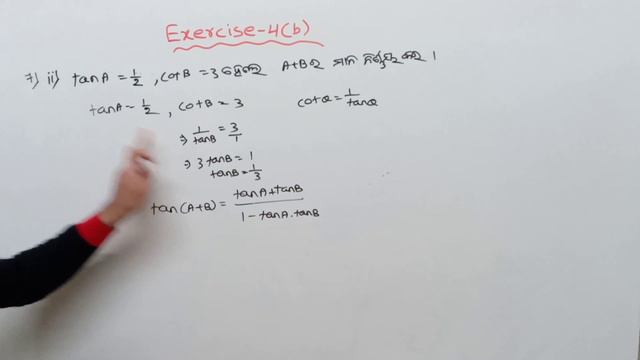 Exercise-4(b)
7) ii) tanA = 1/2 , cotB = 3 ହେଲେ A+Bର ମାନ ନିର୍ଣ୍ଣୟ କର ।
tanA = 1/2 , cotB = 3 cotθ = 1/tanθ
⇒ 1/tanB = 3/1
⇒ 3 tanB = 1
tanB = 1/3
tan(A+B) = tanA+tanB / 1-tanA.tanB